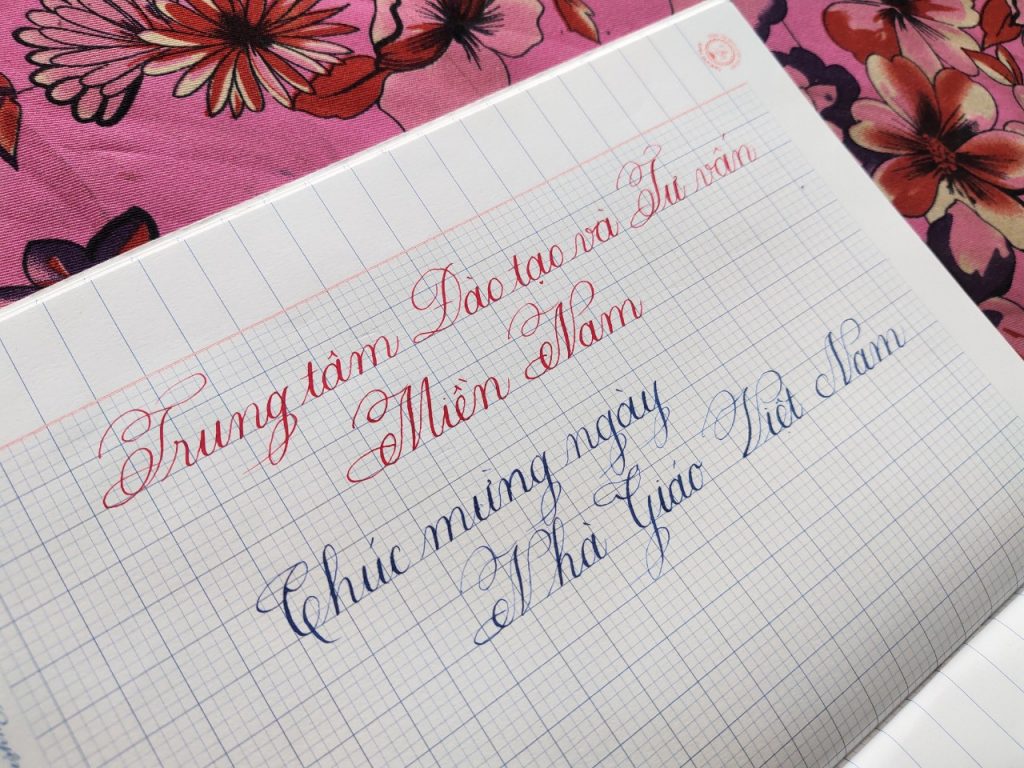 Trung tâm Đào tạo và Tư vấn
Miền Nam
Chúc mừng ngày
Nhà Giáo Việt Nam